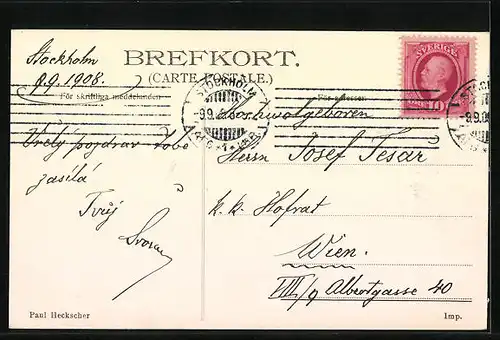 Stockholm
9.9. 1908.
BREFKORT.
(CARTE POSTALE.)
För skriftliga meddelanden.
För adressen.
STOCKHOLM
SVERIGE
10
Vřelý pozdrav Tobě
zasílá
Tvůj
Hochwohlgeboren
Herrn Josef Tesar
k. k. Hofrat
Wien.
VIII/9 Albertgasse 40
Paul Heckscher
Imp.